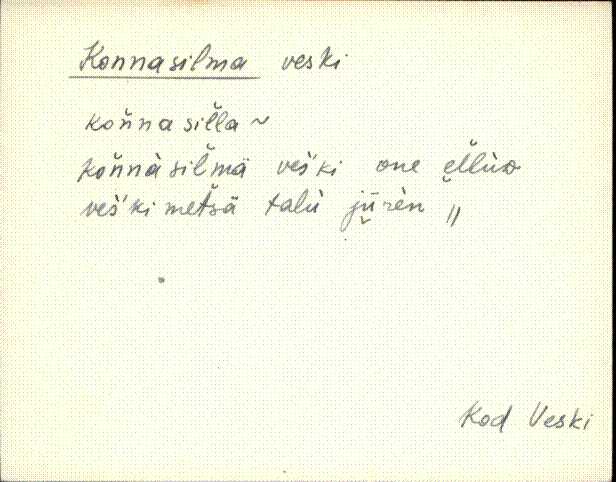 Konnasilma veski
kon̆na sil̆la ~
kon̆nàsil̆mä veš́ki one el̆lùo
veš́kimet̆sä talù jūrèn "
Kod Veski